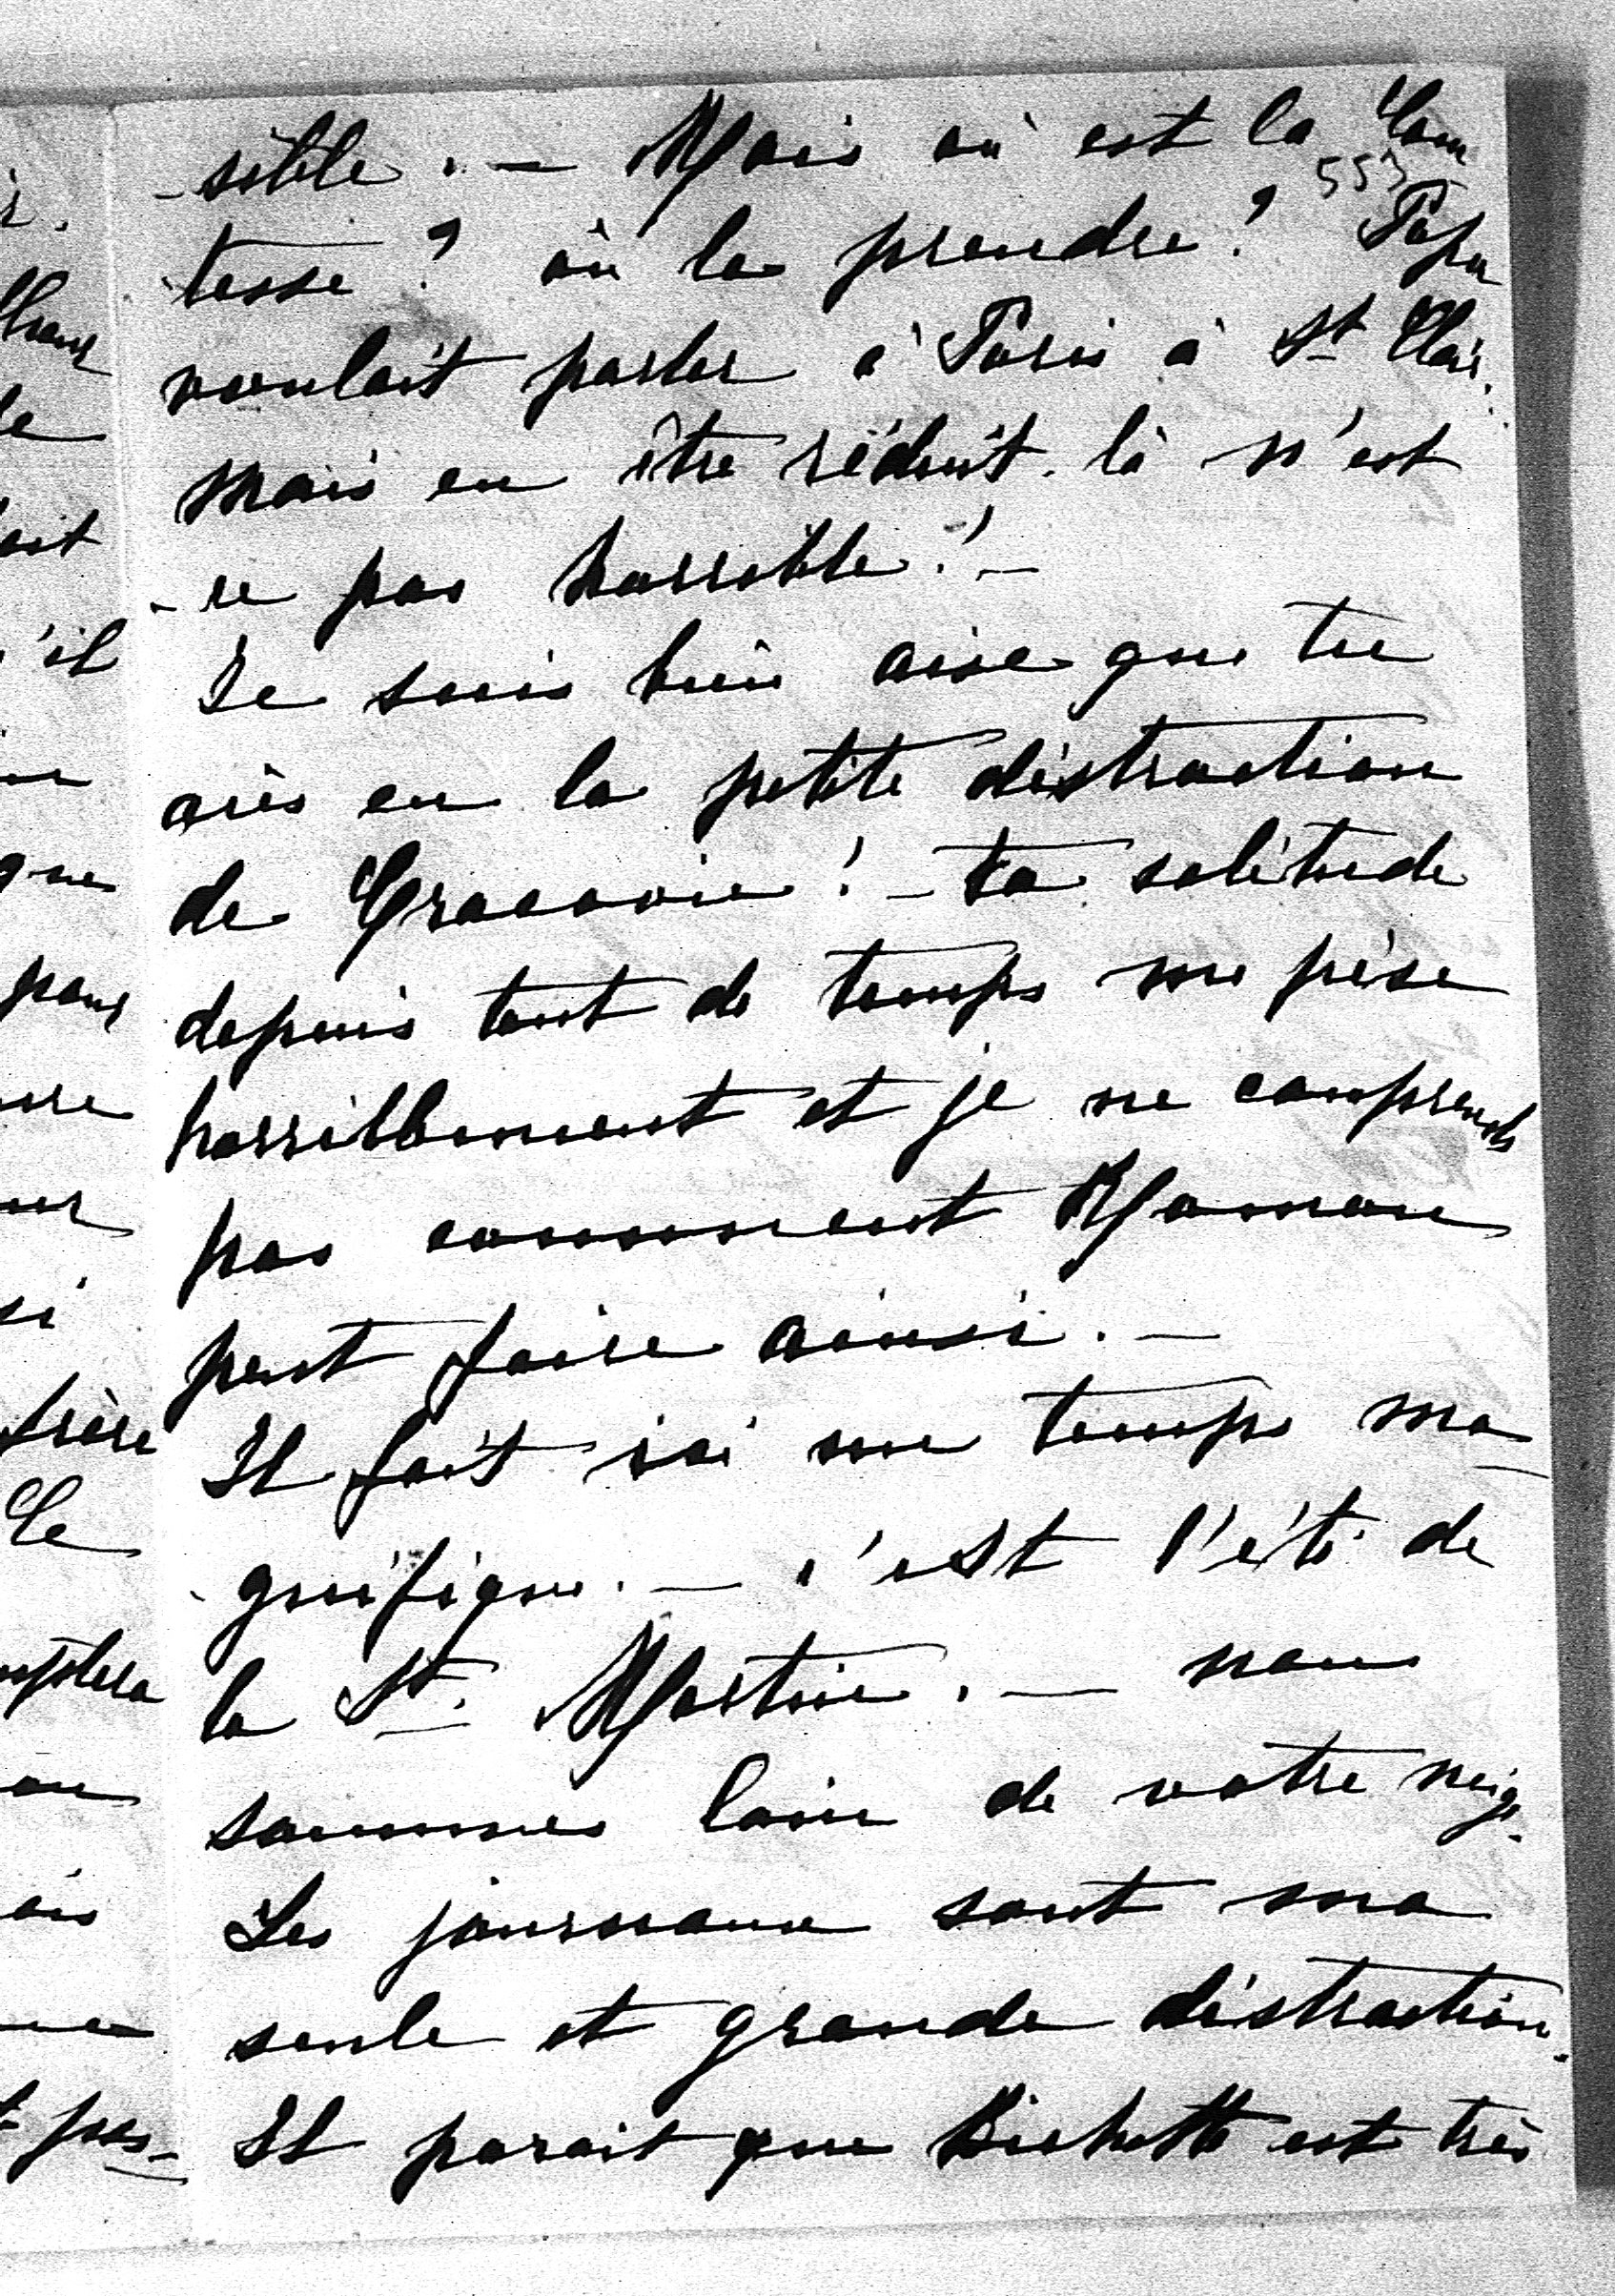 -sible. — Mais où est la Com
553
tesse? où la prendre? Papa
voulait parler à Paris à St Clair.
mais en être réduit là n'est
-ce pas horrible! —
Je suis bien aise que tu
aies eu la petite distraction
de Cracovie! — ta solitude
depuis tant de temps me pèse
horriblement et je ne comprends
pas comment Maman
peut faire ainsi. —
Il fait ici un temps ma-
gnifique. — c'est l'été de
la St. Martin. — nous
sommes loin de votre neige.
Les journaux sont ma
seule et grande distraction.
Il parait que Bichette est très